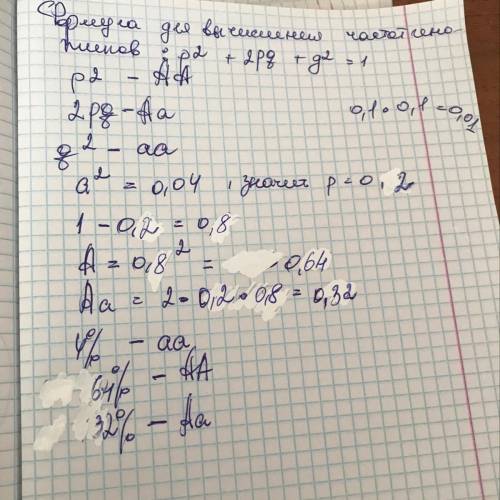 Формула для вычисления частот гено-
типов: p² + 2pq + q² = 1
p² - AA
2pq - Aa
0,1 • 0,1 = 0,01
q² - aa
a² = 0,04, значит p = 0,2
1 - 0,2 = 0,8
A = 0,8² = 0,64
Aa = 2 • 0,2 • 0,8 = 0,32
4% - aa
64% - AA
32% - Aa